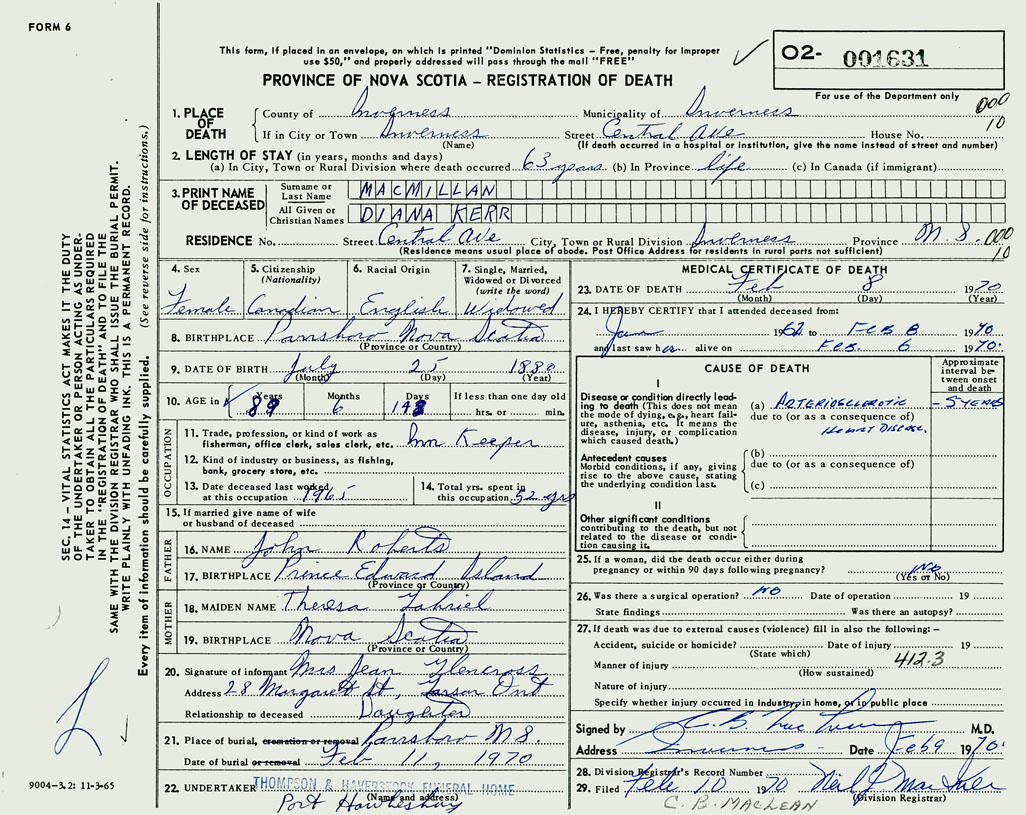 FORM 6
This form, if placed in an envelope, on which is printed "Dominion Statistics – Free, penalty for improper
use $50," and properly addressed will pass through the mail "FREE"
O2- 001631
PROVINCE OF NOVA SCOTIA – REGISTRATION OF DEATH
For use of the Department only
1. PLACE OF DEATH
County of Inverness Municipality of Inverness 000
If in City or Town Inverness Street Central Ave House No. 10
(Name) (If death occurred in a hospital or institution, give the name instead of street and number)
2. LENGTH OF STAY (in years, months and days)
(a) In City, Town or Rural Division where death occurred 63 years (b) In Province life (c) In Canada (if immigrant)
3. PRINT NAME OF DECEASED
Surname or Last Name MACMILLAN
All Given or Christian Names DIANA KERR
RESIDENCE No. Street Central Ave City, Town or Rural Division Inverness Province N.S. 000
(Residence means usual place of abode. Post Office Address for residents in rural parts not sufficient) 10
4. Sex Female
5. Citizenship (Nationality) Canadian
6. Racial Origin English
7. Single, Married, Widowed or Divorced (write the word) Widowed
8. BIRTHPLACE Parrsboro Nova Scotia
(Province or Country)
9. DATE OF BIRTH July 25 1880
(Month) (Day) (Year)
10. AGE in Years Months Days If less than one day old
89 6 hrs. or min.
OCCUPATION
11. Trade, profession, or kind of work as fisherman, office clerk, sales clerk, etc. Inn Keeper
12. Kind of industry or business, as fishing, bank, grocery store, etc.
13. Date deceased last worked at this occupation 1965
14. Total yrs. spent in this occupation 52 yrs
15. If married give name of wife or husband of deceased
FATHER
16. NAME John Roberts
17. BIRTHPLACE Prince Edward Island
(Province or Country)
MOTHER
18. MAIDEN NAME Theresa
19. BIRTHPLACE Nova Scotia
(Province or Country)
20. Signature of informant Mrs Jean Glencross
Address 28 Margarett St, Ont
Relationship to deceased Daughter
21. Place of burial, cremation or removal Parrsboro N.S.
Date of burial or removal Feb 11, 1970
22. UNDERTAKER THOMPSON & HAVERSTOCK FUNERAL HOME
(Name and address)
Port Hawkesbury
MEDICAL CERTIFICATE OF DEATH
23. DATE OF DEATH Feb 8 1970
(Month) (Day) (Year)
24. I HEREBY CERTIFY that I attended deceased from:
Jan 1962 to FEB 8 1970
and last saw her alive on FEB. 6 1970.
CAUSE OF DEATH
Approximate interval between onset and death
I
Disease or condition directly leading to death (This does not mean the mode of dying, e.g., heart failure, asthenia, etc. It means the disease, injury, or complication which caused death.)
(a) ARTERIOSCLEROTIC – 5 YEARS
due to (or as a consequence of)
HEART DISEASE.
Antecedent causes
Morbid conditions, if any, giving rise to the above cause, stating the underlying condition last.
(b)
due to (or as a consequence of)
(c)
II
Other significant conditions
contributing to the death, but not related to the disease or condition causing it.
25. If a woman, did the death occur either during pregnancy or within 90 days following pregnancy? NO
(Yes or No)
26. Was there a surgical operation? NO Date of operation 19
State findings Was there an autopsy?
27. If death was due to external causes (violence) fill in also the following: –
Accident, suicide or homicide? Date of injury 19
(State which)
Manner of injury 412.3
(How sustained)
Nature of injury
Specify whether injury occurred in Industry, in home, or in public place
Signed by M.D.
Address Inverness Date Feb 9 1970.
28. Division Registrar's Record Number
29. Filed Feb 10 1970 Neil J
(Division Registrar)
C. B. MACLEAN
SEC. 14 – VITAL STATISTICS ACT MAKES IT THE DUTY
OF THE UNDERTAKER OR PERSON ACTING AS UNDER-
TAKER TO OBTAIN ALL THE PARTICULARS REQUIRED
IN THE "REGISTRATION OF DEATH" AND TO FILE THE
SAME WITH THE DIVISION REGISTRAR WHO SHALL ISSUE THE BURIAL PERMIT.
WRITE PLAINLY WITH UNFADING INK. THIS IS A PERMANENT RECORD.
Every item of information should be carefully supplied. (See reverse side for instructions.)
9004–3.2: 11-3-65